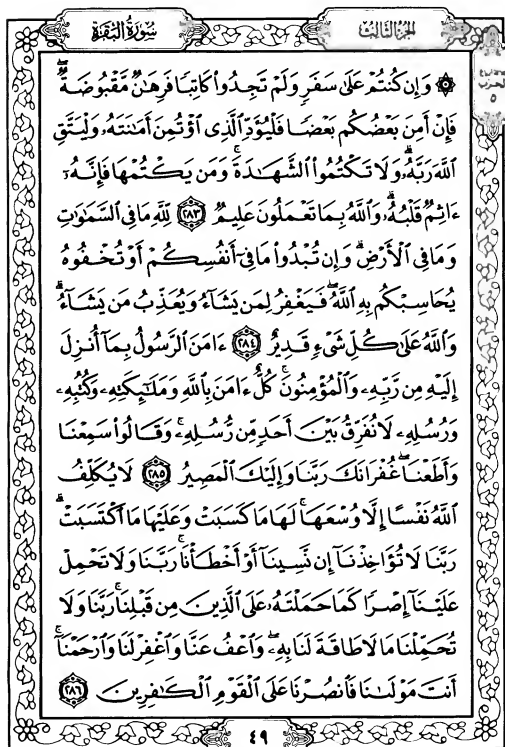 سُورَةُ البَقَرَةِ
الجُزءُ الثَّالِثُ
۞ وَإِن كُنتُمْ عَلَىٰ سَفَرٍ وَلَمْ تَجِدُوا۟ كَاتِبًا فَرِهَٰنٌ مَّقْبُوضَةٌ ۖ
فَإِنْ أَمِنَ بَعْضُكُم بَعْضًا فَلْيُؤَدِّ ٱلَّذِى ٱؤْتُمِنَ أَمَٰنَتَهُۥ وَلْيَتَّقِ
ٱللَّهَ رَبَّهُۥ ۗ وَلَا تَكْتُمُوا۟ ٱلشَّهَٰدَةَ ۚ وَمَن يَكْتُمْهَا فَإِنَّهُۥٓ
ءَاثِمٌ قَلْبُهُۥ ۗ وَٱللَّهُ بِمَا تَعْمَلُونَ عَلِيمٌ ٢٨٣ لِّلَّهِ مَا فِى ٱلسَّمَٰوَٰتِ
وَمَا فِى ٱلْأَرْضِ ۗ وَإِن تُبْدُوا۟ مَا فِىٓ أَنفُسِكُمْ أَوْ تُخْفُوهُ
يُحَاسِبْكُم بِهِ ٱللَّهُ ۖ فَيَغْفِرُ لِمَن يَشَآءُ وَيُعَذِّبُ مَن يَشَآءُ ۗ
وَٱللَّهُ عَلَىٰ كُلِّ شَىْءٍ قَدِيرٌ ٢٨٤ ءَامَنَ ٱلرَّسُولُ بِمَآ أُنزِلَ
إِلَيْهِ مِن رَّبِّهِۦ وَٱلْمُؤْمِنُونَ ۚ كُلٌّ ءَامَنَ بِٱللَّهِ وَمَلَٰٓئِكَتِهِۦ وَكُتُبِهِۦ
وَرُسُلِهِۦ لَا نُفَرِّقُ بَيْنَ أَحَدٍ مِّن رُّسُلِهِۦ ۚ وَقَالُوا۟ سَمِعْنَا
وَأَطَعْنَا ۖ غُفْرَانَكَ رَبَّنَا وَإِلَيْكَ ٱلْمَصِيرُ ٢٨٥ لَا يُكَلِّفُ
ٱللَّهُ نَفْسًا إِلَّا وُسْعَهَا ۚ لَهَا مَا كَسَبَتْ وَعَلَيْهَا مَا ٱكْتَسَبَتْ ۗ
رَبَّنَا لَا تُؤَاخِذْنَآ إِن نَّسِينَآ أَوْ أَخْطَأْنَا ۚ رَبَّنَا وَلَا تَحْمِلْ
عَلَيْنَآ إِصْرًا كَمَا حَمَلْتَهُۥ عَلَى ٱلَّذِينَ مِن قَبْلِنَا ۚ رَبَّنَا وَلَا
تُحَمِّلْنَا مَا لَا طَاقَةَ لَنَا بِهِۦ ۖ وَٱعْفُ عَنَّا وَٱغْفِرْ لَنَا وَٱرْحَمْنَآ ۚ
أَنتَ مَوْلَىٰنَا فَٱنصُرْنَا عَلَى ٱلْقَوْمِ ٱلْكَٰفِرِينَ ٢٨٦
٤٩
الحزب
٥